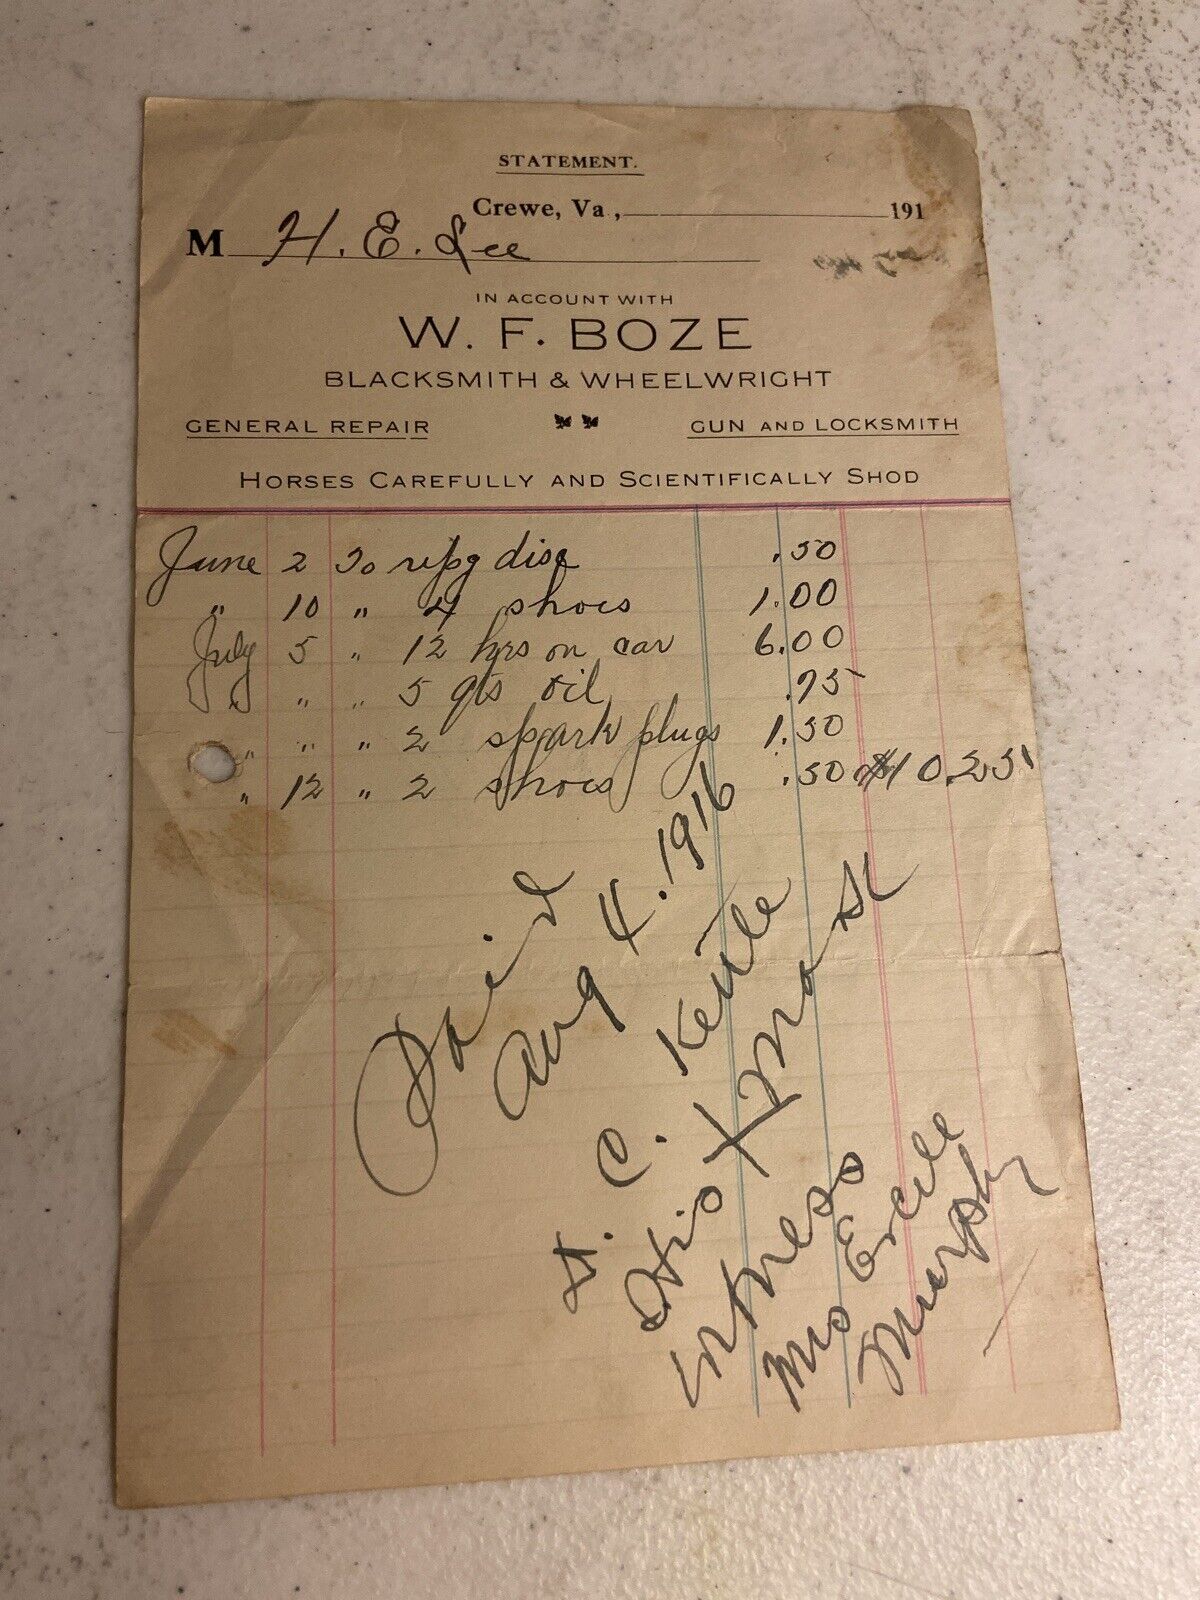 STATEMENT.
Crewe, Va., 191
M H. E. Lee
IN ACCOUNT WITH
W. F. BOZE
BLACKSMITH & WHEELWRIGHT
GENERAL REPAIR GUN AND LOCKSMITH
HORSES CAREFULLY AND SCIENTIFICALLY SHOD
June 2 To repg disc .50
" 10 " 4 shoes 1.00
July 5 " 12 hrs on car 6.00
" " " 5 qts oil .75
" " " 2 spark plugs 1.50
" 12 " 2 shoes .50 $10.25
Paid
Aug 4. 1916
H. C. Keitle
His X Mark
Witness
Mrs Ercele
Murphy